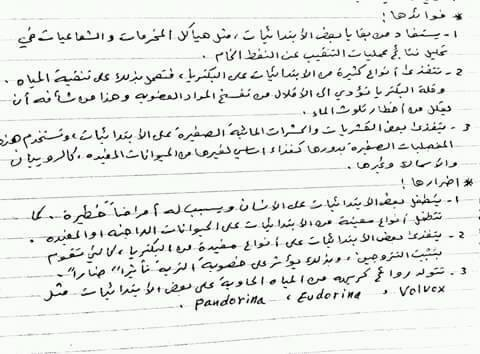 * فوائدها:
1- يستفاد من بقايا بعض الأبتدائيات، مثل هياكل المخرمات والشعاعيات في
تحليل نتائج عمليات التنقيب عن النفط الخام.
2- تتغذى أنواع كثيرة من الأبتدائيات على البكتريا، فتعمل بذلك على تنقية المياه.
وقلة البكتريا تؤدي الى الأقلال من تفسخ المواد العضوية وهذا من شأنه أن
يقلل من أخطار تلوث الماء.
3- يتغذى بعض القشريات والحشرات المائية الصغيرة على الأبتدائيات، وتستخدم هذه
المفصليات الصغيرة بدورها كغذاء اساسي لغيرها من الحيوانات المفيده، كالروبيان
والأسماك وغيرها.
* اضرارها:
1- يتطفل بعض الأبتدائيات على الأنسان ويسبب له أمراضاً خطيرة. كما
تتطفل أنواع معينة من الأبتدائيات على الحيوانات الداجنه او المفيده.
2- يتغذى بعض الأبتدائيات على أنواع مفيدة من البكتريا، كالتي تقوم
بتثبيت النتروجين، وبذلك يؤثر على خصوبة التربة تأثيراً ضاراً.
3- تتولد روائح كريهه من المياه الحاوية على بعض الأبتدائيات مثل
Volvox ، Eudorina ، Pandorina .